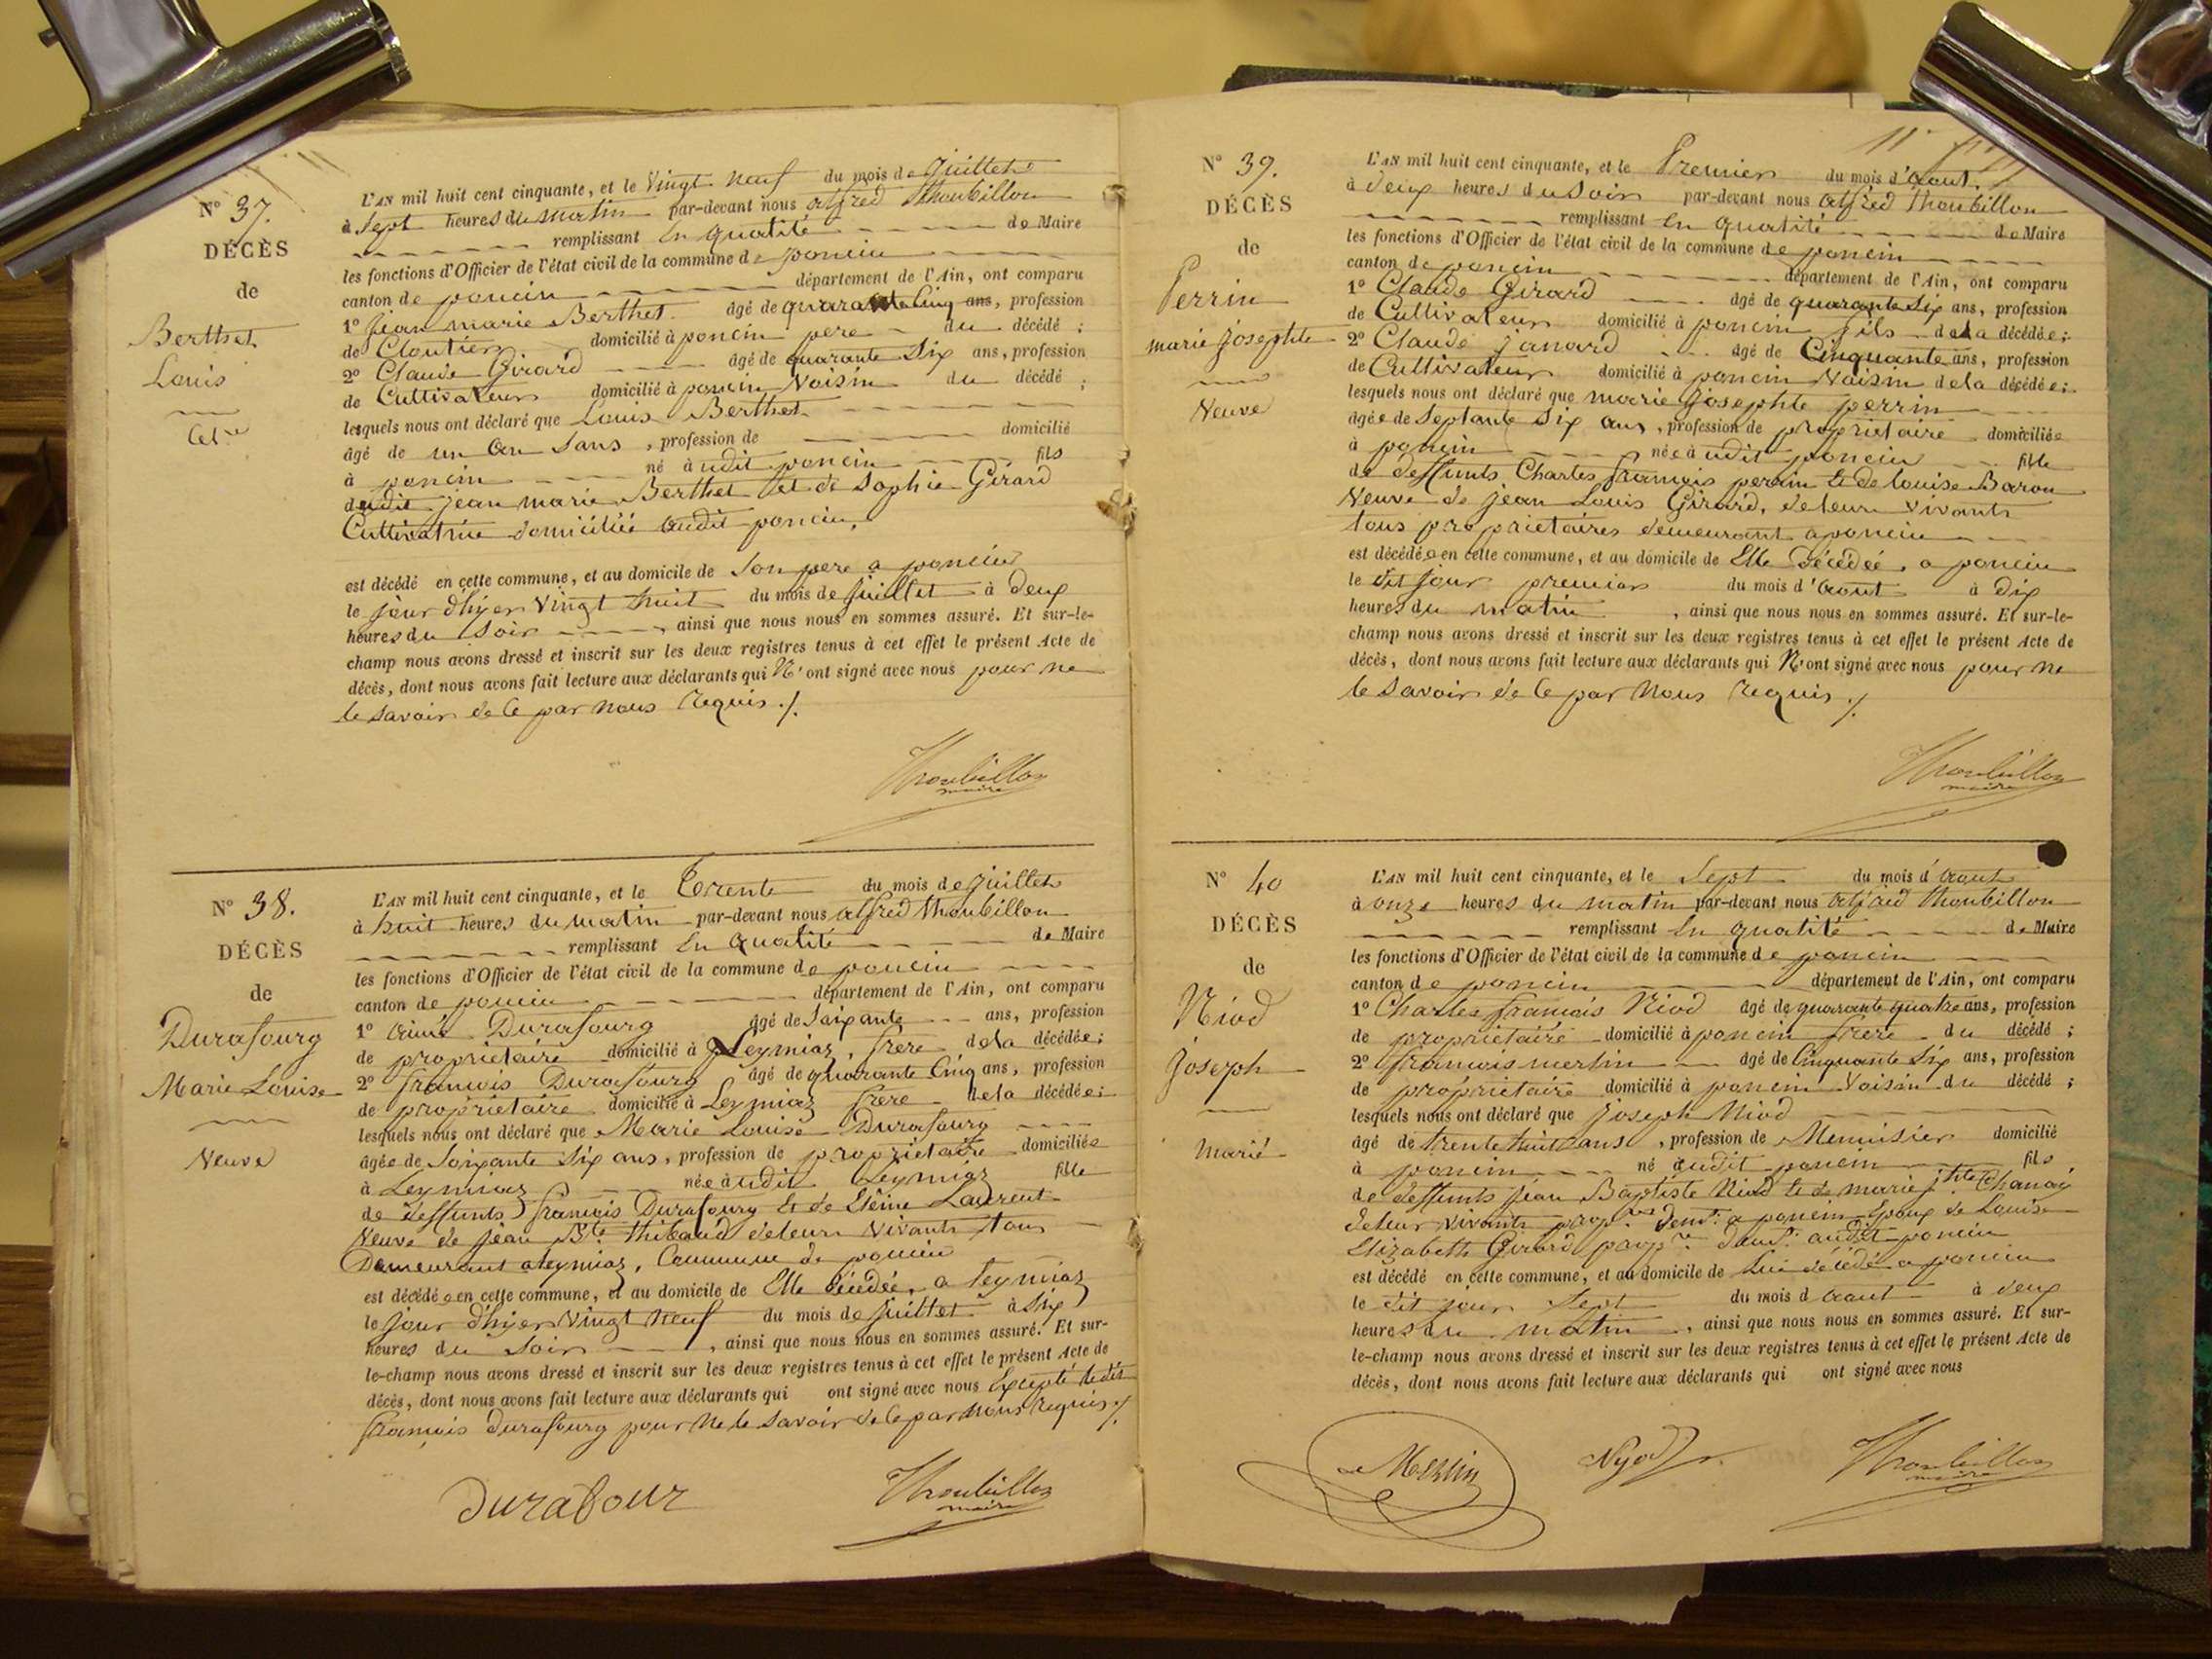 N° 37.
DÉCÈS
de
Berthet
Louis
Cel.re
L'AN mil huit cent cinquante, et le Vingt neuf du mois de juillet
à Sept heures du matin par-devant nous alfred thoubillon
remplissant en qualité de Maire
les fonctions d'Officier de l'état civil de la commune de poncin
canton de poncin département de l'Ain, ont comparu
1° jean marie Berthet âgé de quarante Cinq ans, profession
de Cloutier domicilié à poncin pere du décédé ;
2° Claude Girard âgé de quarante Six ans, profession
de Cultivateur domicilié à poncin Voisin du décédé ;
lesquels nous ont déclaré que Louis Berthet
âgé de un an Sans , profession de domicilié
à poncin né audit poncin fils
dudit jean marie Berthet et de Sophie Girard
Cultivatrice domiciliée audit poncin,
est décédé en cette commune, et au domicile de Son pere a poncin
le jour d'hyer Vingt huit du mois de juillet à deux
heures du Soir , ainsi que nous nous en sommes assuré. Et sur-le-
champ nous avons dressé et inscrit sur les deux registres tenus à cet effet le présent Acte de
décès, dont nous avons fait lecture aux déclarants qui N'ont signé avec nous pour ne
le Savoir de ce par Nous requis ./.
Thoubillon
maire
N° 38.
DÉCÈS
de
Durafourg
Marie Louise
Veuve
L'AN mil huit cent cinquante, et le Trente du mois de juillet
à huit heures du matin par-devant nous alfred thoubillon
remplissant en qualité de Maire
les fonctions d'Officier de l'état civil de la commune de poncin
canton de poncin département de l'Ain, ont comparu
1° aimé Durafourg âgé de Soixante ans, profession
de proprietaire domicilié à Leymiaz, frere dela décédée ;
2° francois Durafourg âgé de quarante Cinq ans, profession
de proprietaire domicilié à Leymiaz frere dela décédée ;
lesquels nous ont déclaré que Marie Louise Durafourg
âgée de Soixante Six ans, profession de proprietaire domiciliée
à Leymiaz née audit Leymiaz fille
de deffunts francois Durafourg et de Laurent
Veuve de jean B.te thibaud deleur Vivants tous
Demeurant a leymiaz, Commune de poncin
est décédée en cette commune, et au domicile de Elle décédée, a leymiaz
le jour d'hyer Vingt neuf du mois de juillet à Six
heures du Soir , ainsi que nous nous en sommes assuré. Et sur-
le-champ nous avons dressé et inscrit sur les deux registres tenus à cet effet le présent Acte de
décès, dont nous avons fait lecture aux déclarants qui ont signé avec nous Excepté ledit
francois Durafourg pour Ne le Savoir de ce par nous requis ./.
Durafour
Thoubillon
maire
N° 39.
DÉCÈS
de
Perrin
marie josephte
Veuve
L'AN mil huit cent cinquante, et le Premier du mois d'aout
à deux heures du Soir par-devant nous alfred thoubillon
remplissant en qualité de Maire
les fonctions d'Officier de l'état civil de la commune de poncin
canton de poncin département de l'Ain, ont comparu
1° Claude Girard âgé de quarante Six ans, profession
de Cultivateur domicilié à poncin fils dela décédée ;
2° Claude janard âgé de Cinquante ans, profession
de Cultivateur domicilié à poncin Voisin dela décédée ;
lesquels nous ont déclaré que marie josephte perrin
âgée de Septante Six ans, profession de proprietaire domiciliée
à poncin née audit poncin fille
de deffunts Charles francois perrin et de louise Baron
Veuve de jean Louis Girard, deleur Vivants
tous proprietaires demeurant a poncin
est décédée en cette commune, et au domicile de Elle Décédée, a poncin
le dit jour premier du mois d'aout à dix
heures du matin , ainsi que nous nous en sommes assuré. Et sur-le-
champ nous avons dressé et inscrit sur les deux registres tenus à cet effet le présent Acte de
décès, dont nous avons fait lecture aux déclarants qui N'ont signé avec nous pour ne
le Savoir de ce par Nous requis ./.
Thoubillon
maire
N° 40
DÉCÈS
de
Niod
joseph
marié
L'AN mil huit cent cinquante, et le Sept du mois d'aout
à onze heures du matin par-devant nous alfred thoubillon
remplissant en qualité de Maire
les fonctions d'Officier de l'état civil de la commune de poncin
canton de poncin département de l'Ain, ont comparu
1° Charles francois Niod âgé de quarante quatre ans, profession
de proprietaire domicilié à poncin frere du décédé ;
2° francois merlin âgé de Cinquante Six ans, profession
de proprietaire domicilié à poncin Voisin du décédé ;
lesquels nous ont déclaré que joseph Niod
âgé de trente huit ans, profession de Menuisier domicilié
à poncin né audit poncin fils
de deffunts jean Baptiste Niod et de marie j.hte Chanay
deleur vivants prop.res dem.t a poncin Epoux de Louise
Elizabeth Girard prop.re dem.t audit poncin
est décédé en cette commune, et au domicile de Lui décédé a poncin
le dit jour Sept du mois d'aout à deux
heures du matin , ainsi que nous nous en sommes assuré. Et sur-
le-champ nous avons dressé et inscrit sur les deux registres tenus à cet effet le présent Acte de
décès, dont nous avons fait lecture aux déclarants qui ont signé avec nous
Merlin
Nyod
Thoubillon
maire